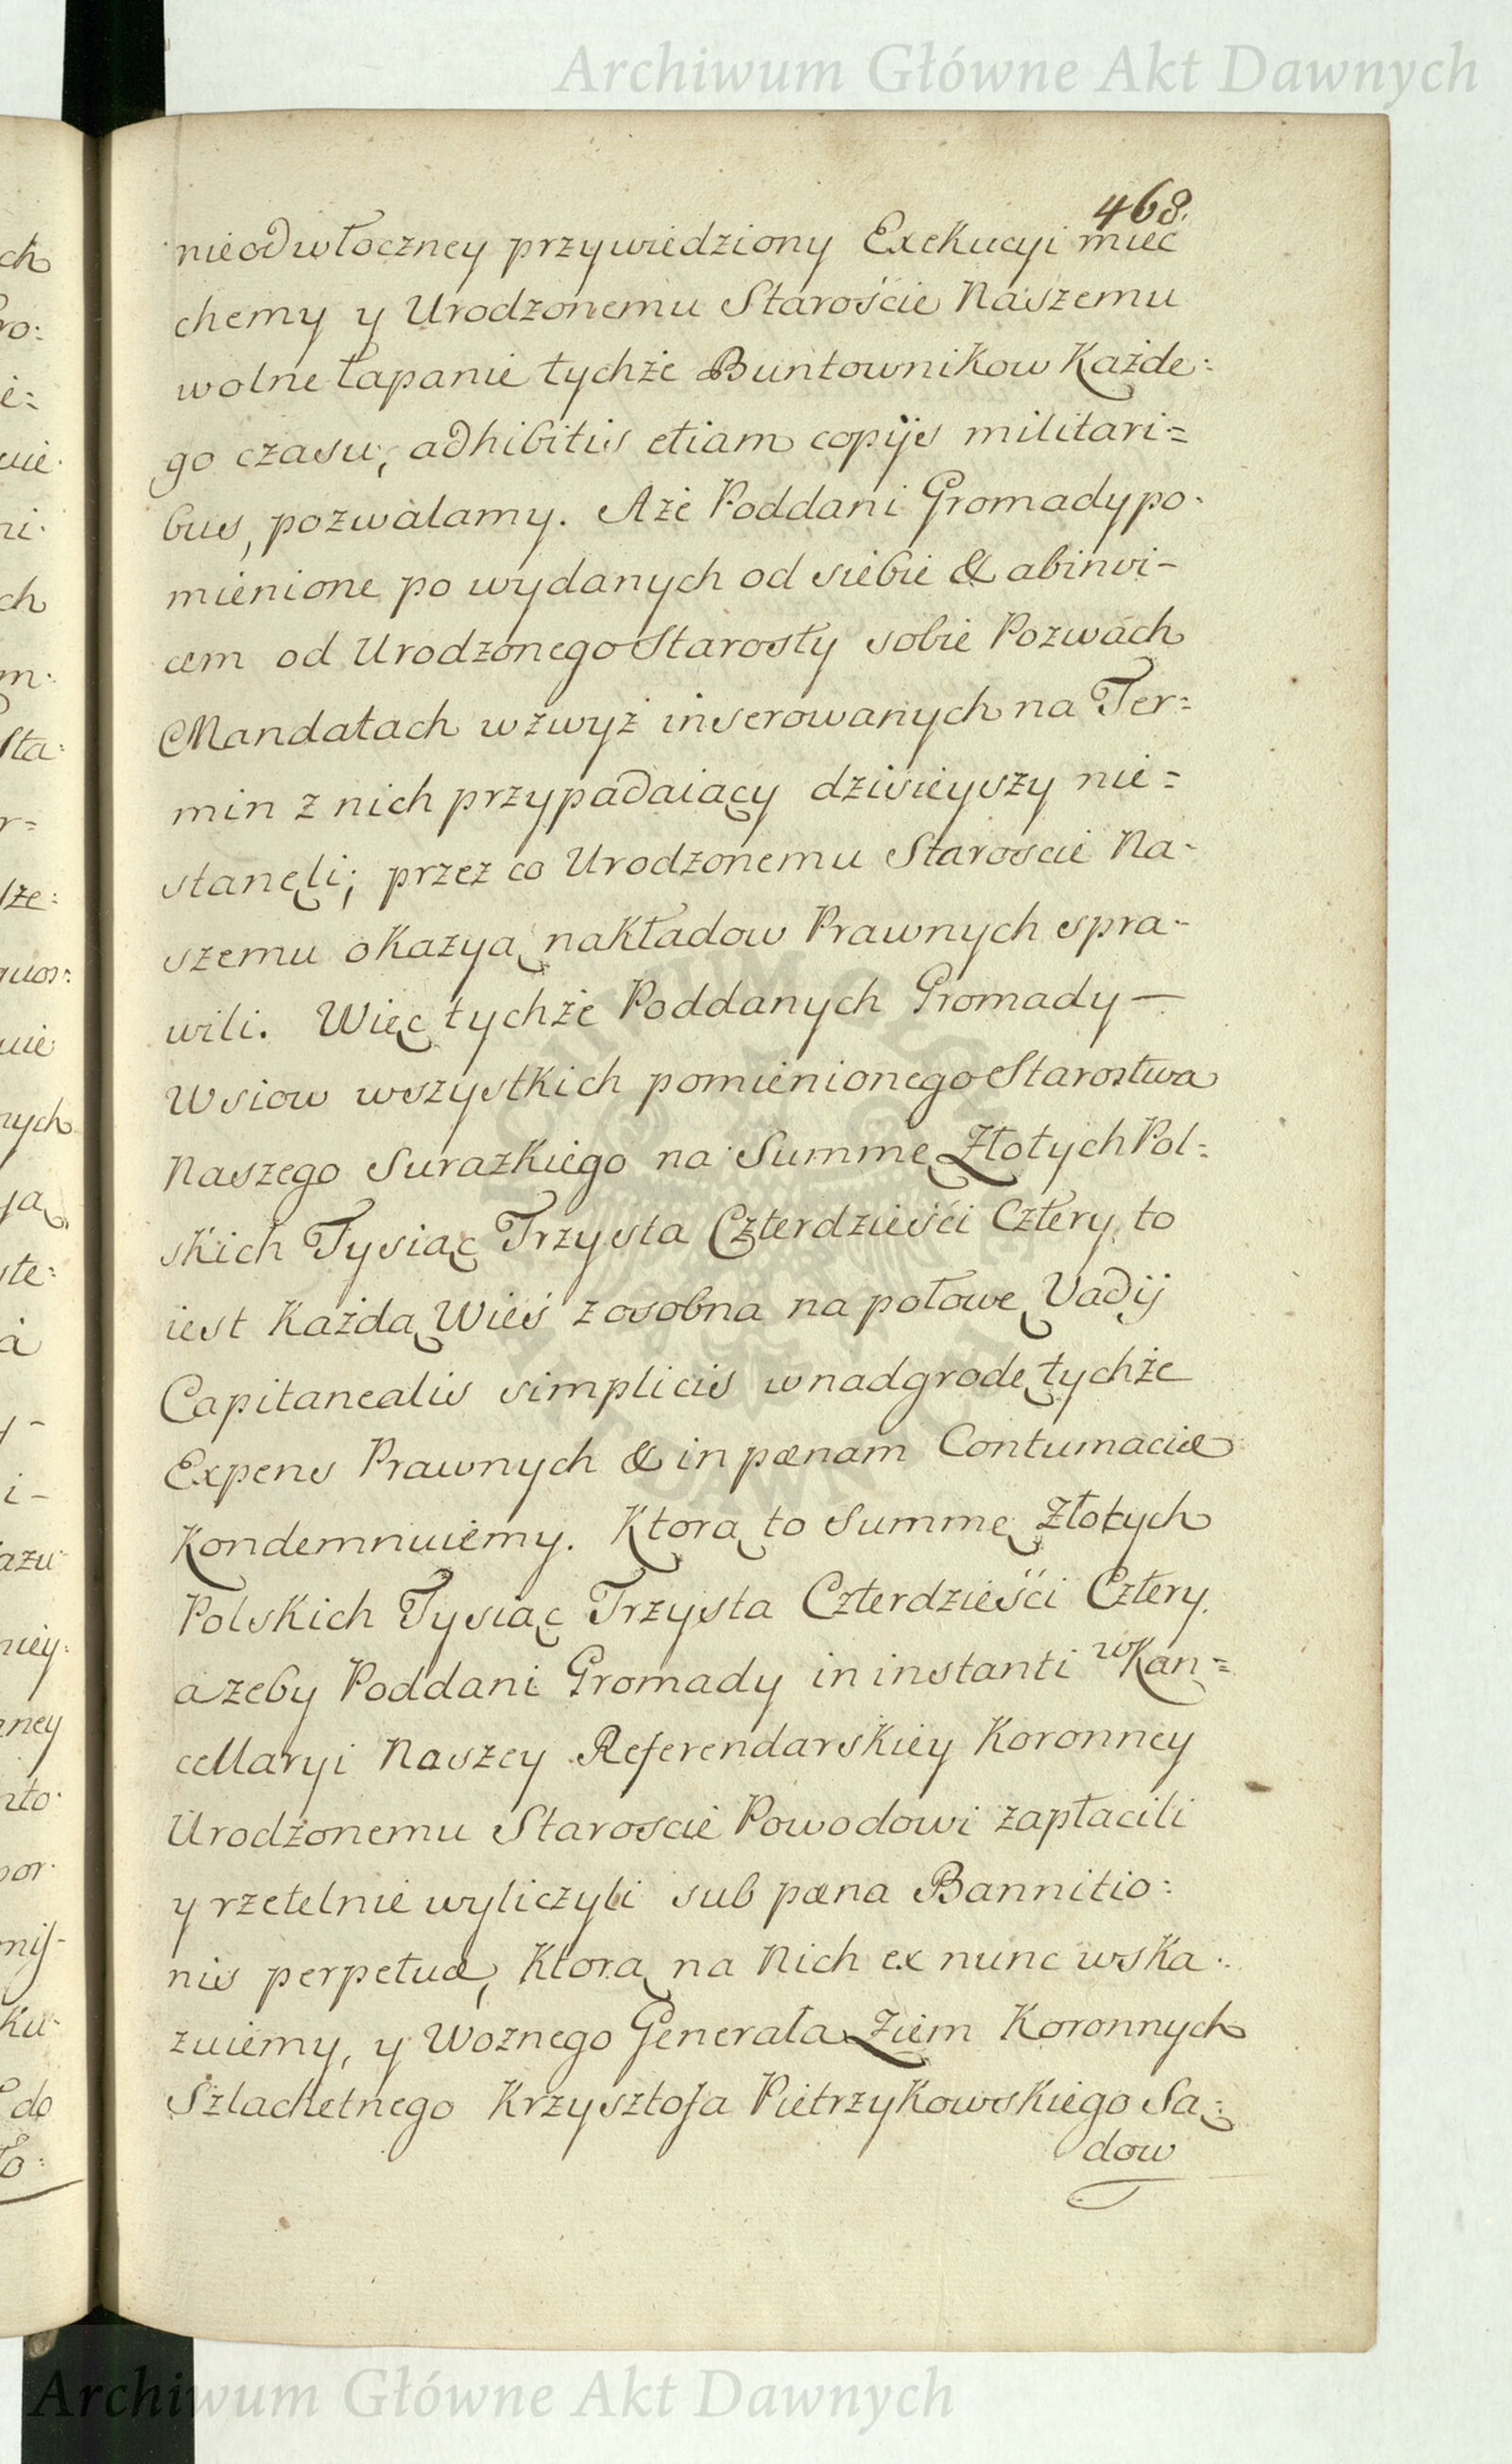 Archiwum Główne Akt Dawnych
468.
nieodwłoczney przywiedziony Exekucyi mieć
chemy y Urodzonemu Starościе Naszemu
wolne łapanie tychże Buntownikow Każde:
go czasu, adhibitis etiam copijs militari=
bus, pozwalamy. Aże Poddani Gromady po-
mienione po wydanych od siebie & abinvi-
cem od Urodzonego Starosty sobie Pozwach
Mandatach wzwyż inserowanych na Ter=
min z nich przypadaiący dzisieyszy nie=
stanęli; przez co Urodzonemu Staroscie Na-
szemu okazyą nakładow Prawnych spra-
wili. Więc tychże Poddanych Gromady —
Wsiow wszystkich pomienionego Starostwa
Naszego Surazkiego na Summę Złotych Pol:
skich Tysiąc Trzysta Czterdzieści Cztery, to
iest Każdą Wieś zosobna na połowę Vadij
Capitanealis simplicis wnadgrodę tychże
Expens Prawnych & in pœnam Contumaciæ
Kondemnuiemy. Ktorą to Summę Złotych
Polskich Tysiąc Trzysta Czterdzieści Cztery.
ażeby Poddani Gromady in instanti w Kan=
cellaryi Naszey Referendarskiey Koronney
Urodzonemu Staroscie Powodowi zapłacili
y rzetelnie wyliczyli sub pœna Bannitio:
nis perpetuæ, Ktorą na Nich ex nunc wska:
zuiemy, y Woznego Generała Ziem Koronnych
Szlachetnego Krzysztofa Pietrzykowskiego Są:
dow
Archiwum Główne Akt Dawnych